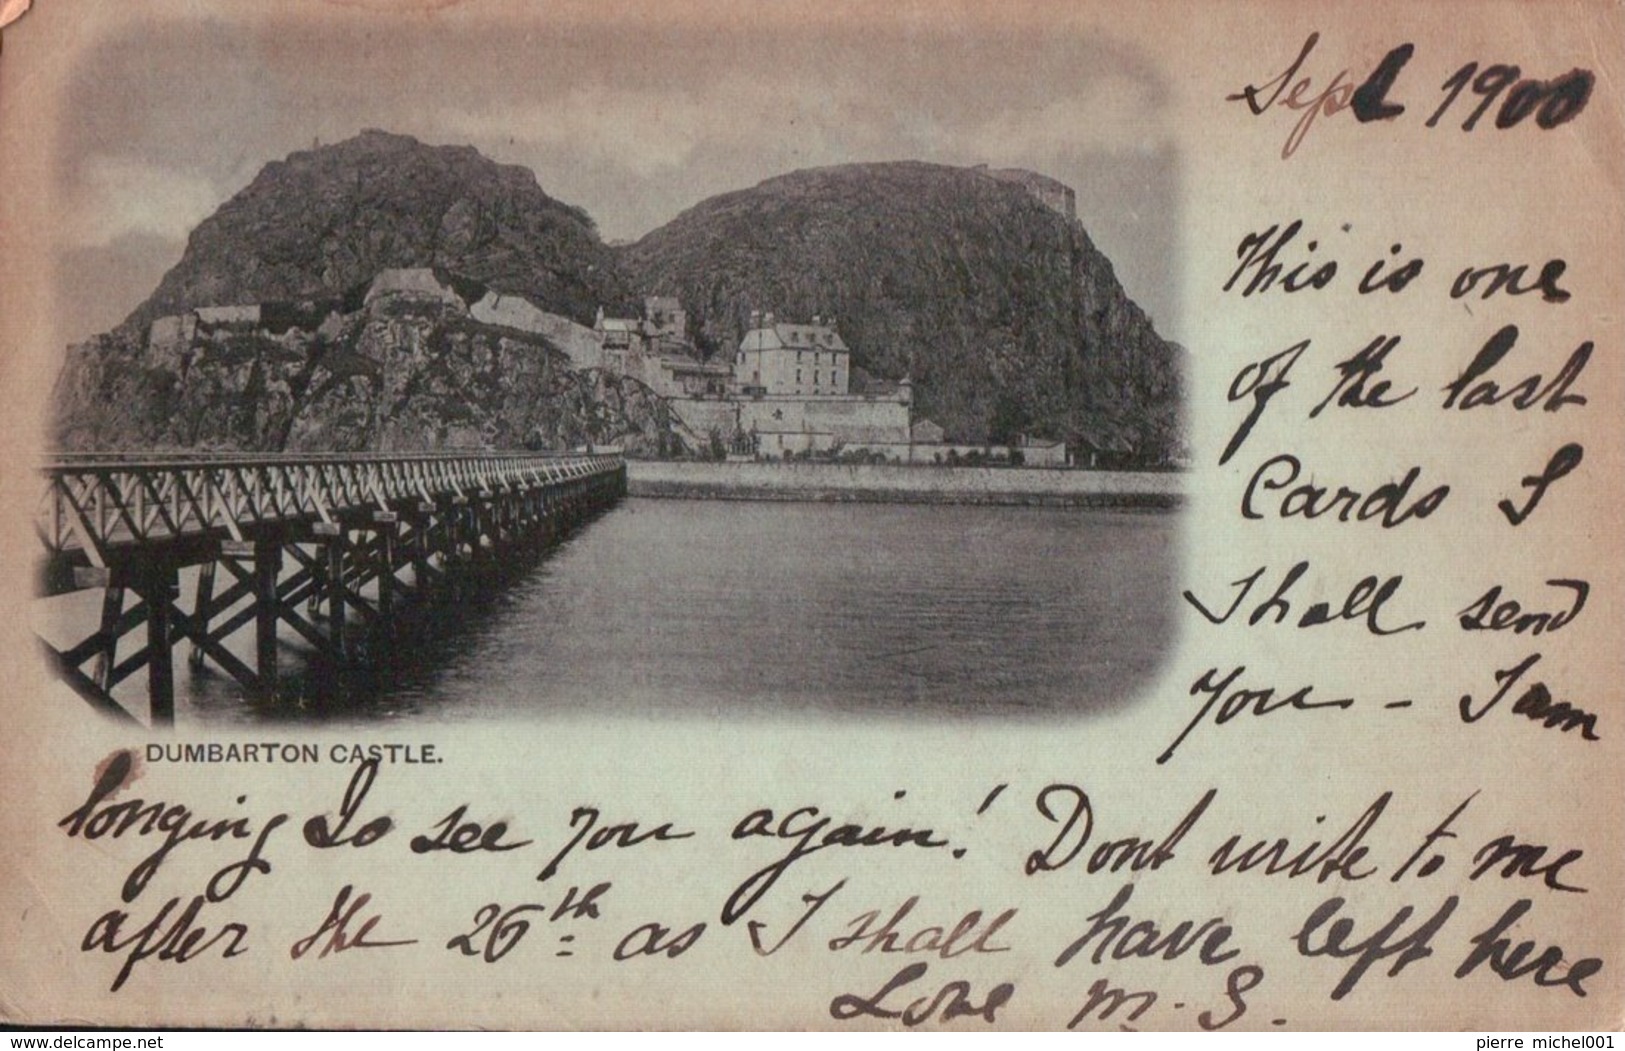 Sept 1900
This is one
of the last
Cards I
shall send
you - I am
DUMBARTON CASTLE.
longing to see you again! Dont write to me
after the 26th as I shall have left here
Love M. S.
delcampe.net
pierre michel001